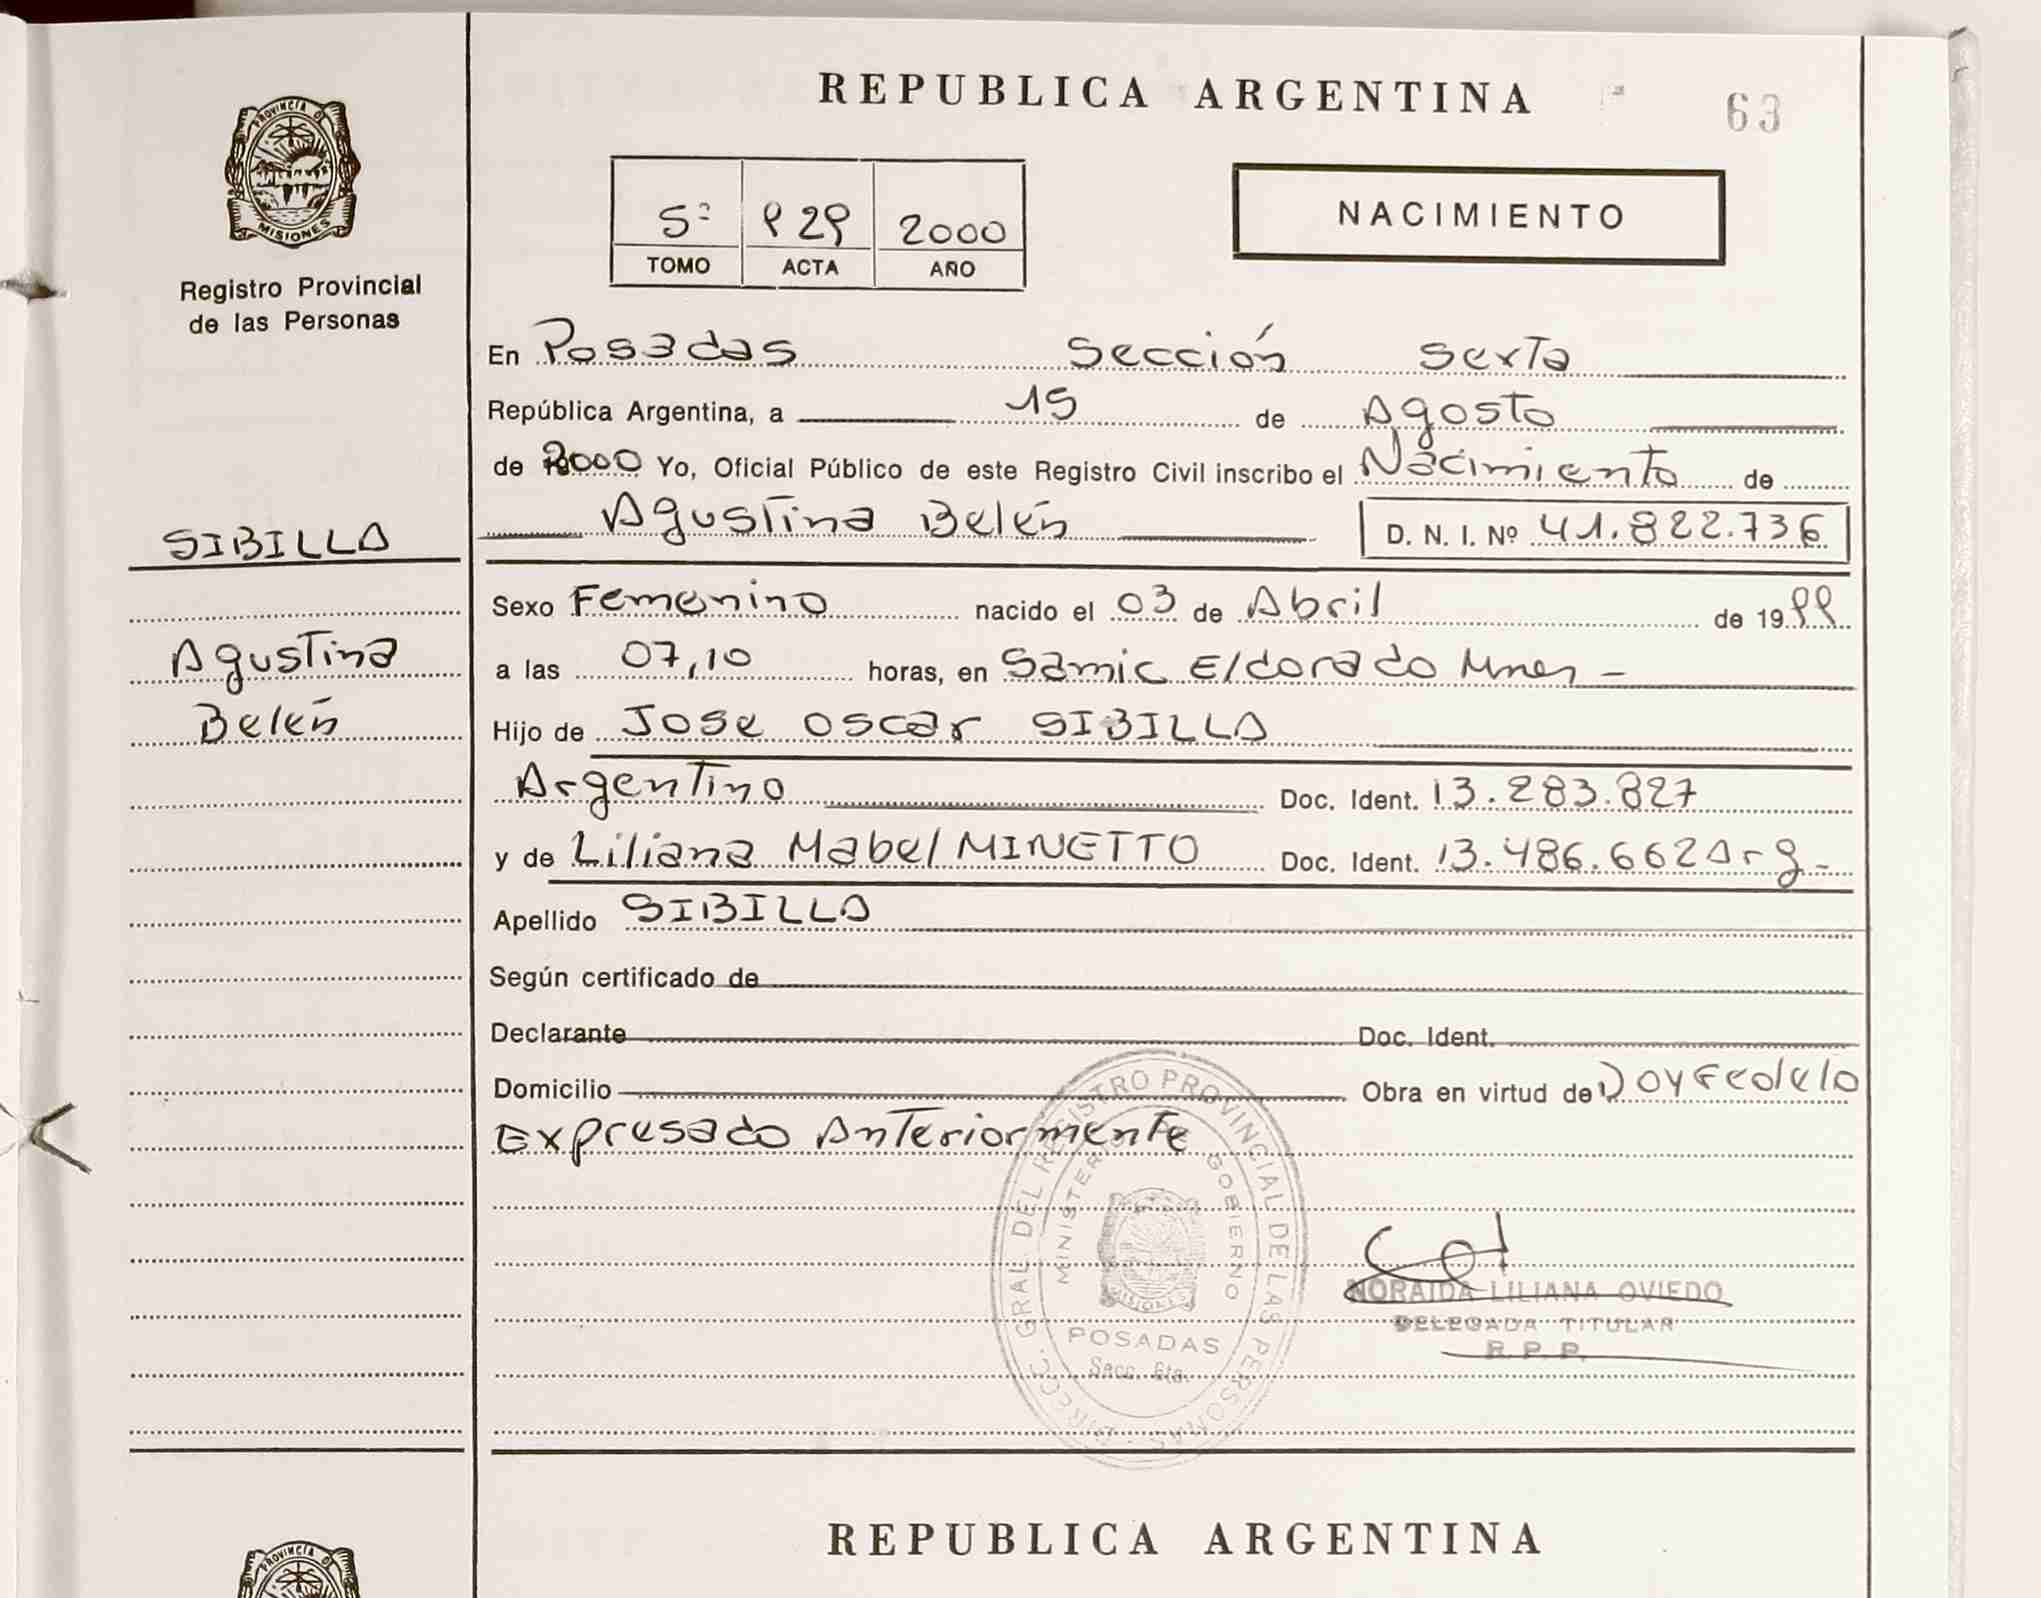 REPUBLICA ARGENTINA
63
PROVINCIA DE
MISIONES
Registro Provincial
de las Personas
5º 929 2000
TOMO ACTA AÑO
NACIMIENTO
En Posadas Sección Sexta
República Argentina, a 15 de Agosto
de 2000 Yo, Oficial Público de este Registro Civil inscribo el Nacimiento de
Agustina Belén D. N. I. Nº 41.822.736
SIBILLA
Agustina
Belén
Sexo Femenino nacido el 03 de Abril de 1999
a las 07,10 horas, en Samic Eldorado Mnes -
Hijo de Jose Oscar SIBILLA
Argentino Doc. Ident. 13.283.827
y de Liliana Mabel MINETTO Doc. Ident. 13.486.662 Arg-
Apellido SIBILLA
Según certificado de
Declarante Doc. Ident.
Domicilio Obra en virtud de Doy Fe de lo
Expresado Anteriormente
DIRECC. GRAL. DEL REGISTRO PROVINCIAL DE LAS PERSONAS
MINISTERIO GOBIERNO
MISIONES
POSADAS
Secc. 6ta.
NORAIDA LILIANA OVIEDO
DELEGADA TITULAR
R. P. P.
REPUBLICA ARGENTINA
PROVINCIA DE